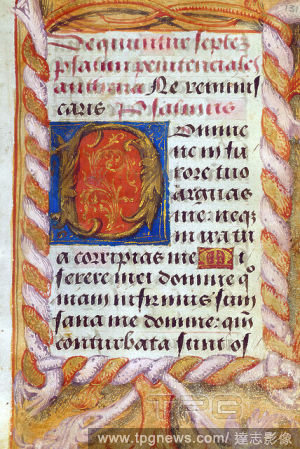 131
Sequuntur septez
psalmi penitenciales
Ne reminis
caris Psalmus
Domine
ne in fu
rore tuo
arguas
me: neqz
in ira tu
a corripias me Mi
serere mei domine qo
niam infirmus sum
sana me domine: qm
conturbata sunt os
TPG
www.tpgnews.com/ 達志影像